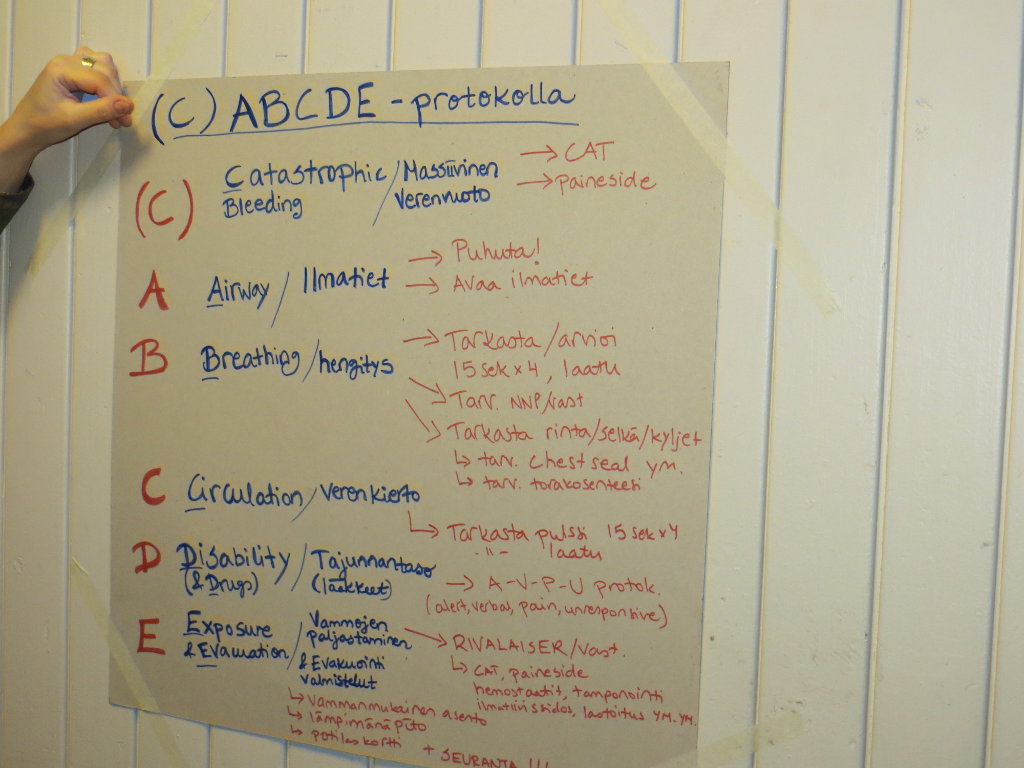 (C) ABCDE - protokolla
(C) Catastrophic / Massiivinen → CAT
Bleeding verenvuoto → paineside
A Airway / Ilmatiet → Puhuta!
→ Avaa ilmatiet
B Breathing / hengitys → Tarkasta / arvioi
15 sek x 4, laatu
Tarv. NNP/vast
Tarkasta rinta/selkä/kyljet
↳ tarv. Chest seal ym.
↳ tarv. torakosenteesi
C Circulation / verenkierto
↳ Tarkasta pulssi 15 sek x 4
-"- laatu
D Disability / Tajunnantaso
(& Drugs) (lääkkeet)
→ A-V-P-U protok.
(alert, verbal, pain, unresponsive)
E Exposure / Vammojen paljastaminen
& Evacuation & Evakuointi valmistelut
→ RIVALAISER/vast.
↳ CAT, paineside
hemostaatit, tamponointi
lastoitus ym. ym.
↳ Vammanmukainen asento
↳ lämpimänä pito
↳ potilaskortti + SEURANTA !!!